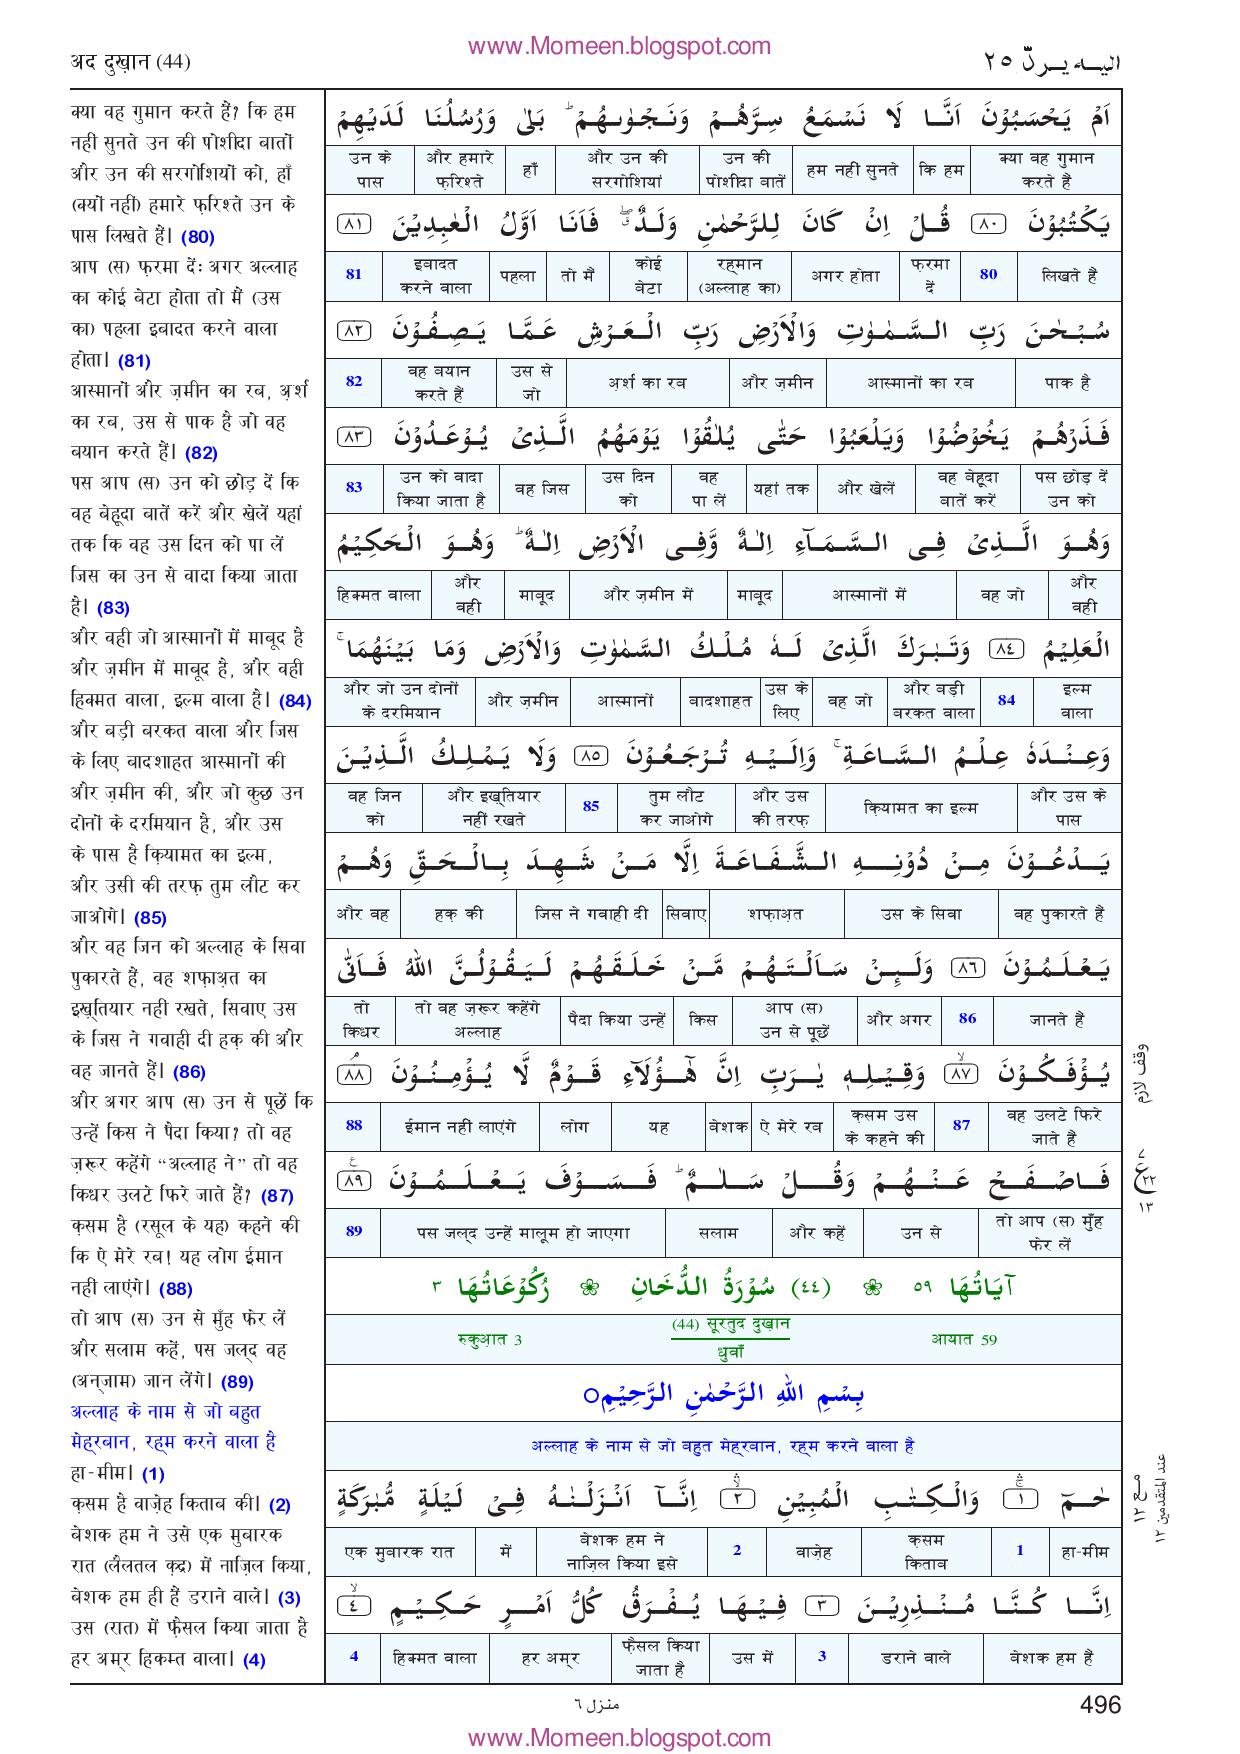 www.Momeen.blogspot.com
अद दुख़ान (44)
الیـہ یـردّ ٢٥
क्या वह गुमान करते हैं? कि हम
नहीं सुनते उन की पोशीदा बातों
और उन की सरगोशियों को, हाँ
(क्यों नहीं) हमारे फ़रिश्ते उन के
पास लिखते हैं। (80)
आप (स) फ़रमा दें: अगर अल्लाह
का कोई बेटा होता तो मैं (उस
का) पहला इबादत करने वाला
होता। (81)
आस्मानों और ज़मीन का रब, अ़र्श
का रब, उस से पाक है जो वह
बयान करते हैं। (82)
पस आप (स) उन को छोड़ दें कि
वह बेहूदा बातें करें और खेलें यहां
तक कि वह उस दिन को पा लें
जिस का उन से वादा किया जाता
है। (83)
और वही जो आस्मानों में माबूद है
और ज़मीन में माबूद है, और वही
हिक्मत वाला, इल्म वाला है। (84)
और बड़ी बरकत वाला और जिस
के लिए बादशाहत आस्मानों की
और ज़मीन की, और जो कुछ उन
दोनों के दरमियान है, और उस
के पास है क़ियामत का इल्म,
और उसी की तरफ़ तुम लौट कर
जाओगे। (85)
और वह जिन को अल्लाह के सिवा
पुकारते हैं, वह शफ़ाअ़त का
इख़्तियार नहीं रखते, सिवाए उस
के जिस ने गवाही दी हक़ की और
वह जानते हैं। (86)
और अगर आप (स) उन से पूछें कि
उन्हें किस ने पैदा किया? तो वह
ज़रूर कहेंगे “अल्लाह ने” तो वह
किधर उलटे फिरे जाते हैं? (87)
क़सम है (रसूल के यह) कहने की
कि ऐ मेरे रब! यह लोग ईमान
नहीं लाएंगे। (88)
तो आप (स) उन से मुँह फेर लें
और सलाम कहें, पस जल्द वह
(अन्जाम) जान लेंगे। (89)
अल्लाह के नाम से जो बहुत
मेह्रबान, रहम करने वाला है
हा-मीम। (1)
क़सम है वाज़ेह किताब की। (2)
बेशक हम ने उसे एक मुबारक
रात (लैलतल क़द्र) में नाज़िल किया,
बेशक हम ही हैं डराने वाले। (3)
उस (रात) में फ़ैसल किया जाता है
हर अम्र हिकम्त वाला। (4)
اَمۡ یَحۡسَبُوۡنَ اَنَّا لَا نَسۡمَعُ سِرَّهُمۡ وَنَجۡوٰىهُمۡ ؕ بَلٰى وَرُسُلُنَا لَدَیۡهِمۡ
क्या वह गुमान करते हैं | कि हम | हम नहीं सुनते | उन की पोशीदा बातें | और उन की सरगोशियां | हाँ | और हमारे फ़रिश्ते | उन के पास
یَكۡتُبُوۡنَ ٨٠ قُلۡ اِنۡ كَانَ لِلرَّحۡمٰنِ وَلَدٌ ۖ فَاَنَا اَوَّلُ الۡعٰبِدِیۡنَ ٨١
लिखते हैं | 80 | फ़रमा दें | अगर होता | रह्मान (अल्लाह का) | कोई बेटा | तो मैं | पहला | इबादत करने वाला | 81
سُبۡحٰنَ رَبِّ السَّمٰوٰتِ وَالۡاَرۡضِ رَبِّ الۡعَرۡشِ عَمَّا یَصِفُوۡنَ ٨٢
पाक है | आस्मानों का रब | और ज़मीन | अ़र्श का रब | उस से जो | वह बयान करते हैं | 82
فَذَرۡهُمۡ یَخُوۡضُوۡا وَیَلۡعَبُوۡا حَتّٰى یُلٰقُوۡا یَوۡمَهُمُ الَّذِىۡ یُوۡعَدُوۡنَ ٨٣
पस छोड़ दें उन को | वह बेहूदा बातें करें | और खेलें | यहां तक | वह पा लें | उस दिन को | वह जिस | उन को वादा किया जाता है | 83
وَهُوَ الَّذِىۡ فِى السَّمَآءِ اِلٰهٌ وَّفِى الۡاَرۡضِ اِلٰهٌ ؕ وَهُوَ الۡحَكِیۡمُ
और वही | वह जो | आस्मानों में | माबूद | और ज़मीन में | माबूद | और वही | हिक्मत वाला
الۡعَلِیۡمُ ٨٤ وَتَبٰرَكَ الَّذِىۡ لَهٗ مُلۡكُ السَّمٰوٰتِ وَالۡاَرۡضِ وَمَا بَیۡنَهُمَا ۚ
इल्म वाला | 84 | और बड़ी बरकत वाला | वह जो | उस के लिए | बादशाहत | आस्मानों | और ज़मीन | और जो उन दोनों के दरमियान
وَعِنۡدَهٗ عِلۡمُ السَّاعَةِ ۚ وَاِلَیۡهِ تُرۡجَعُوۡنَ ٨٥ وَلَا یَمۡلِكُ الَّذِیۡنَ
और उस के पास | क़ियामत का इल्म | और उस की तरफ़ | तुम लौट कर जाओगे | 85 | और इख़्तियार नहीं रखते | वह जिन को
یَدۡعُوۡنَ مِنۡ دُوۡنِهِ الشَّفَاعَةَ اِلَّا مَنۡ شَهِدَ بِالۡحَقِّ وَهُمۡ
वह पुकारते हैं | उस के सिवा | शफ़ाअ़त | सिवाए | जिस ने गवाही दी | हक़ की | और वह
یَعۡلَمُوۡنَ ٨٦ وَلَىِٕنۡ سَاَلۡتَهُمۡ مَّنۡ خَلَقَهُمۡ لَیَقُوۡلُنَّ اللّٰهُ فَاَنّٰى
जानते हैं | 86 | और अगर | आप (स) उन से पूछें | किस | पैदा किया उन्हें | तो वह ज़रूर कहेंगे अल्लाह | तो किधर
یُؤۡفَكُوۡنَ ۙ ٨٧ وَقِیۡلِهٖ یٰرَبِّ اِنَّ هٰٓؤُلَآءِ قَوۡمٌ لَّا یُؤۡمِنُوۡنَ ۘ ٨٨
वह उलटे फिरे जाते हैं | 87 | क़सम उस के कहने की | ऐ मेरे रब | बेशक | यह | लोग | ईमान नहीं लाएंगे | 88
فَاصۡفَحۡ عَنۡهُمۡ وَقُلۡ سَلٰمٌ ؕ فَسَوۡفَ یَعۡلَمُوۡنَ ٨٩ ع
तो आप (स) मुँह फेर लें | उन से | और कहें | सलाम | पस जल्द उन्हें मालूम हो जाएगा | 89
آیَاتُهَا ٥٩ ❀ (٤٤) سُوۡرَةُ الدُّخَانِ ❀ رُكُوۡعَاتُهَا ٣
आयात 59 | (44) सूरतुद दुख़ान | रुकुआ़त 3
धुवाँ
بِسۡمِ اللّٰهِ الرَّحۡمٰنِ الرَّحِیۡمِ○
अल्लाह के नाम से जो बहुत मेह्रबान, रहम करने वाला है
حٰمٓ ١ وَالۡكِتٰبِ الۡمُبِیۡنِ ٢ اِنَّاۤ اَنۡزَلۡنٰهُ فِىۡ لَیۡلَةٍ مُّبٰرَكَةٍ
हा-मीम | 1 | क़सम किताब | वाज़ेह | 2 | बेशक हम ने नाज़िल किया इसे | में | एक मुबारक रात
اِنَّا كُنَّا مُنۡذِرِیۡنَ ٣ فِیۡهَا یُفۡرَقُ كُلُّ اَمۡرٍ حَكِیۡمٍ ۙ ٤
बेशक हम हैं | डराने वाले | 3 | उस में | फ़ैसल किया जाता है | हर अम्र | हिक्मत वाला | 4
وقف لازم
ع ٧ ٢٢ ١٣
مـع ١٢
عند المتقدمین ١٢
منزل ٦
496
www.Momeen.blogspot.com